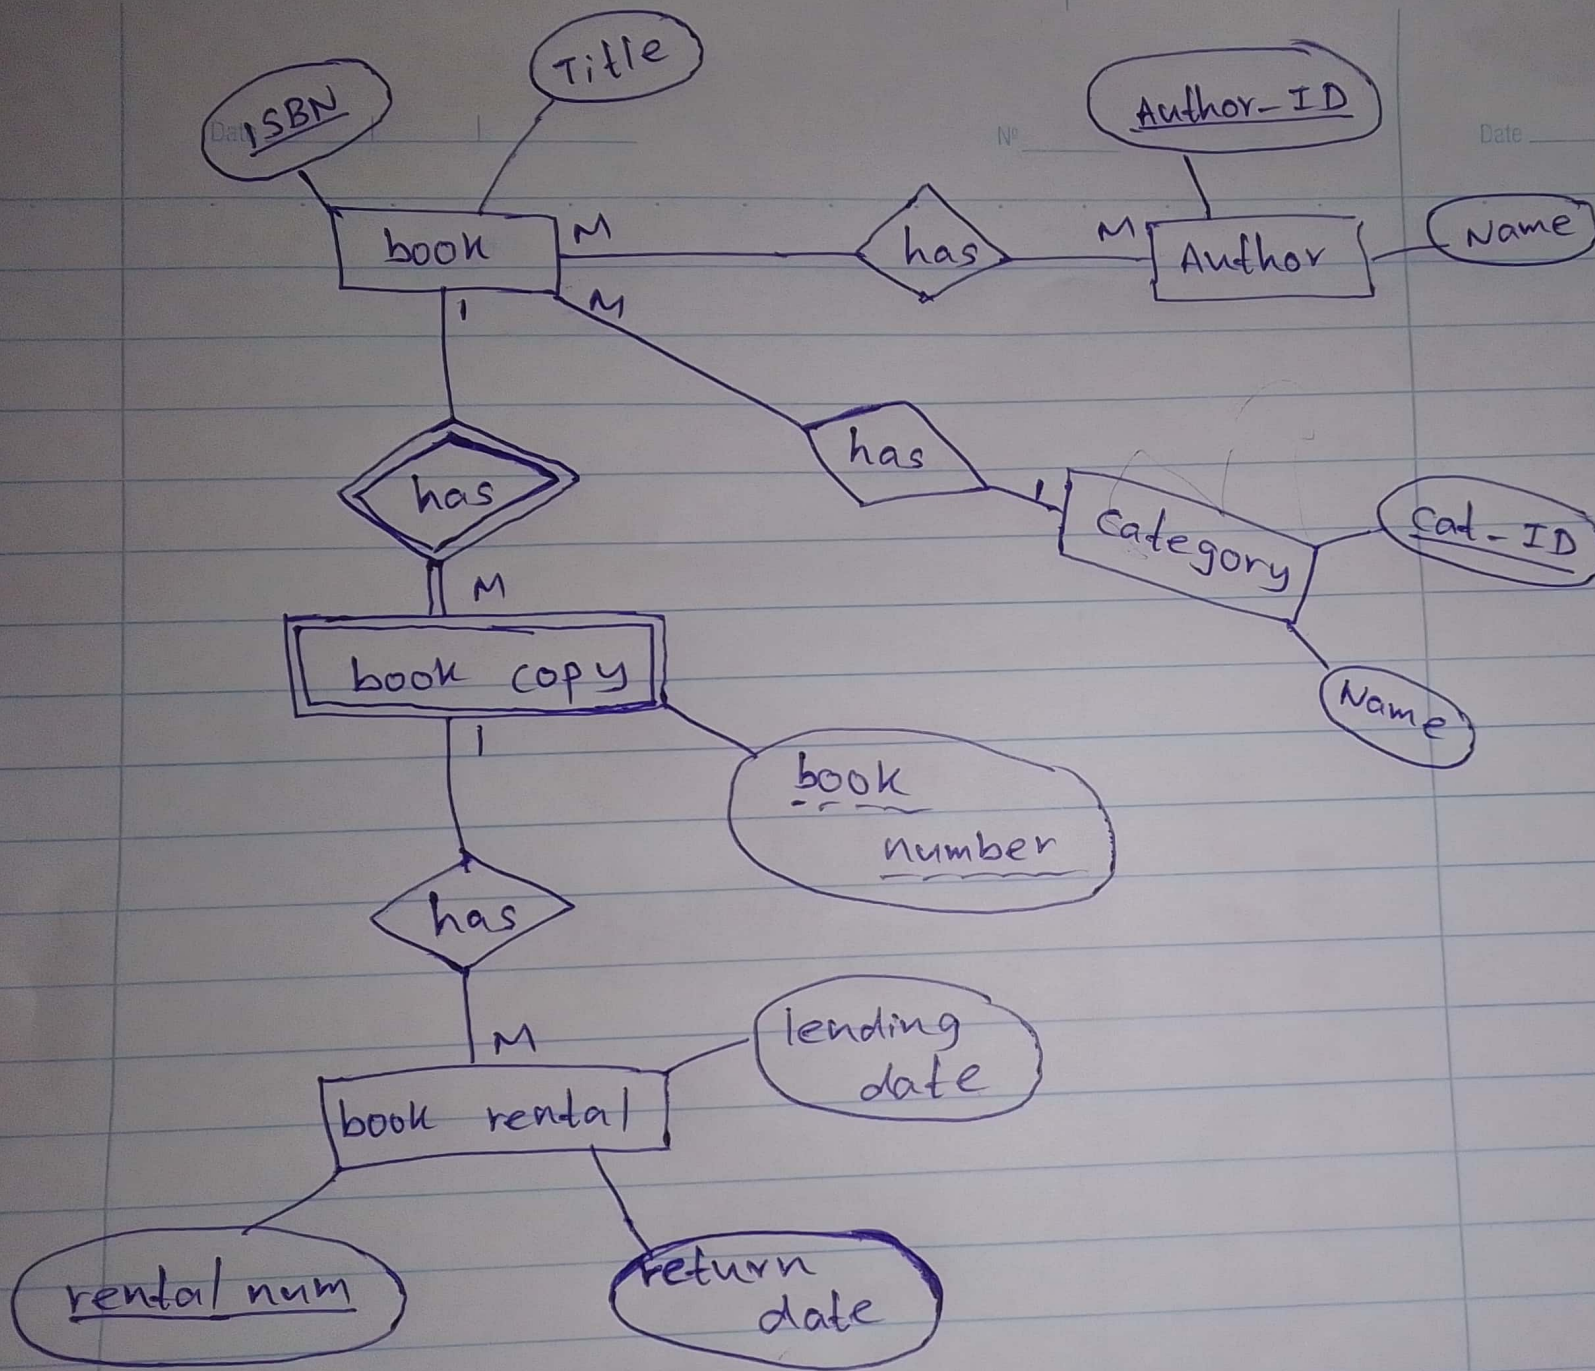 Title
ISBN
Author-ID
Date
Nº
Date
book
M
has
M
Author
Name
1
M
has
has
1
Category
Cat-ID
M
book copy
Name
1
book
number
has
M
lending
date
book rental
rental num
return
date